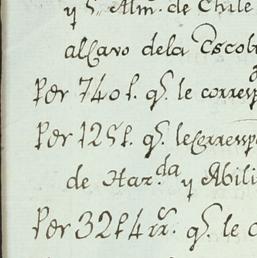 y S. Alm. de Chile
al Cavo dela Escob
Per 740 f. qe. le corresp
Per 125 f. qe. le Corresp
de Har.da y Abili
Per 32 f 4 rr. qe. le c